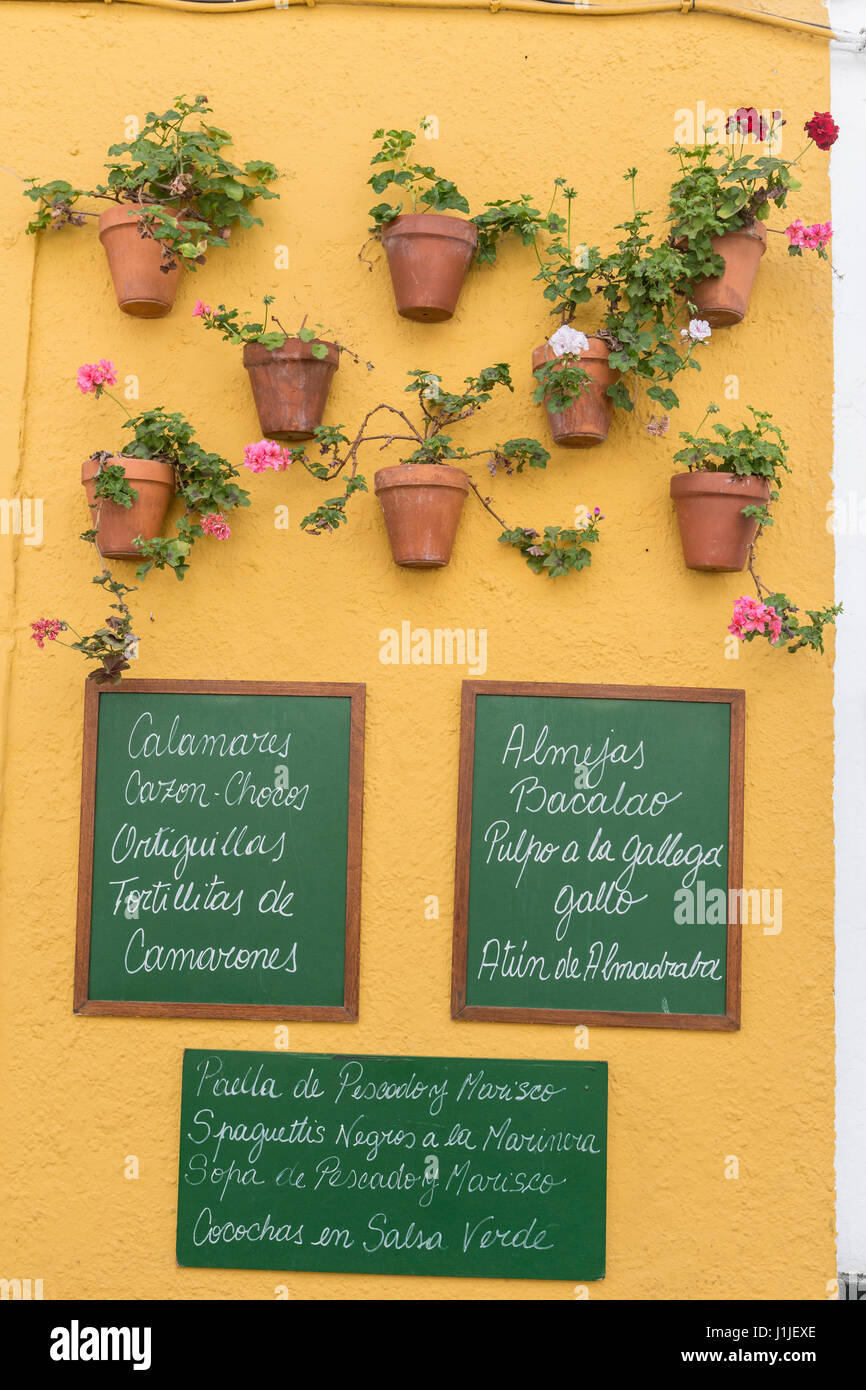 Calamares
Cazon-Chocos
Ortiguillas
Tortillitas de
Camarones
Almejas
Bacalao
Pulpo a la gallega
gallo
Atún de Almadraba
Paella de Pescado y Marisco
Spaguettis Negros a la Marinera
Sopa de Pescado y Marisco
Cocochas en Salsa Verde
alamy
Image ID: J1JEXE
www.alamy.com